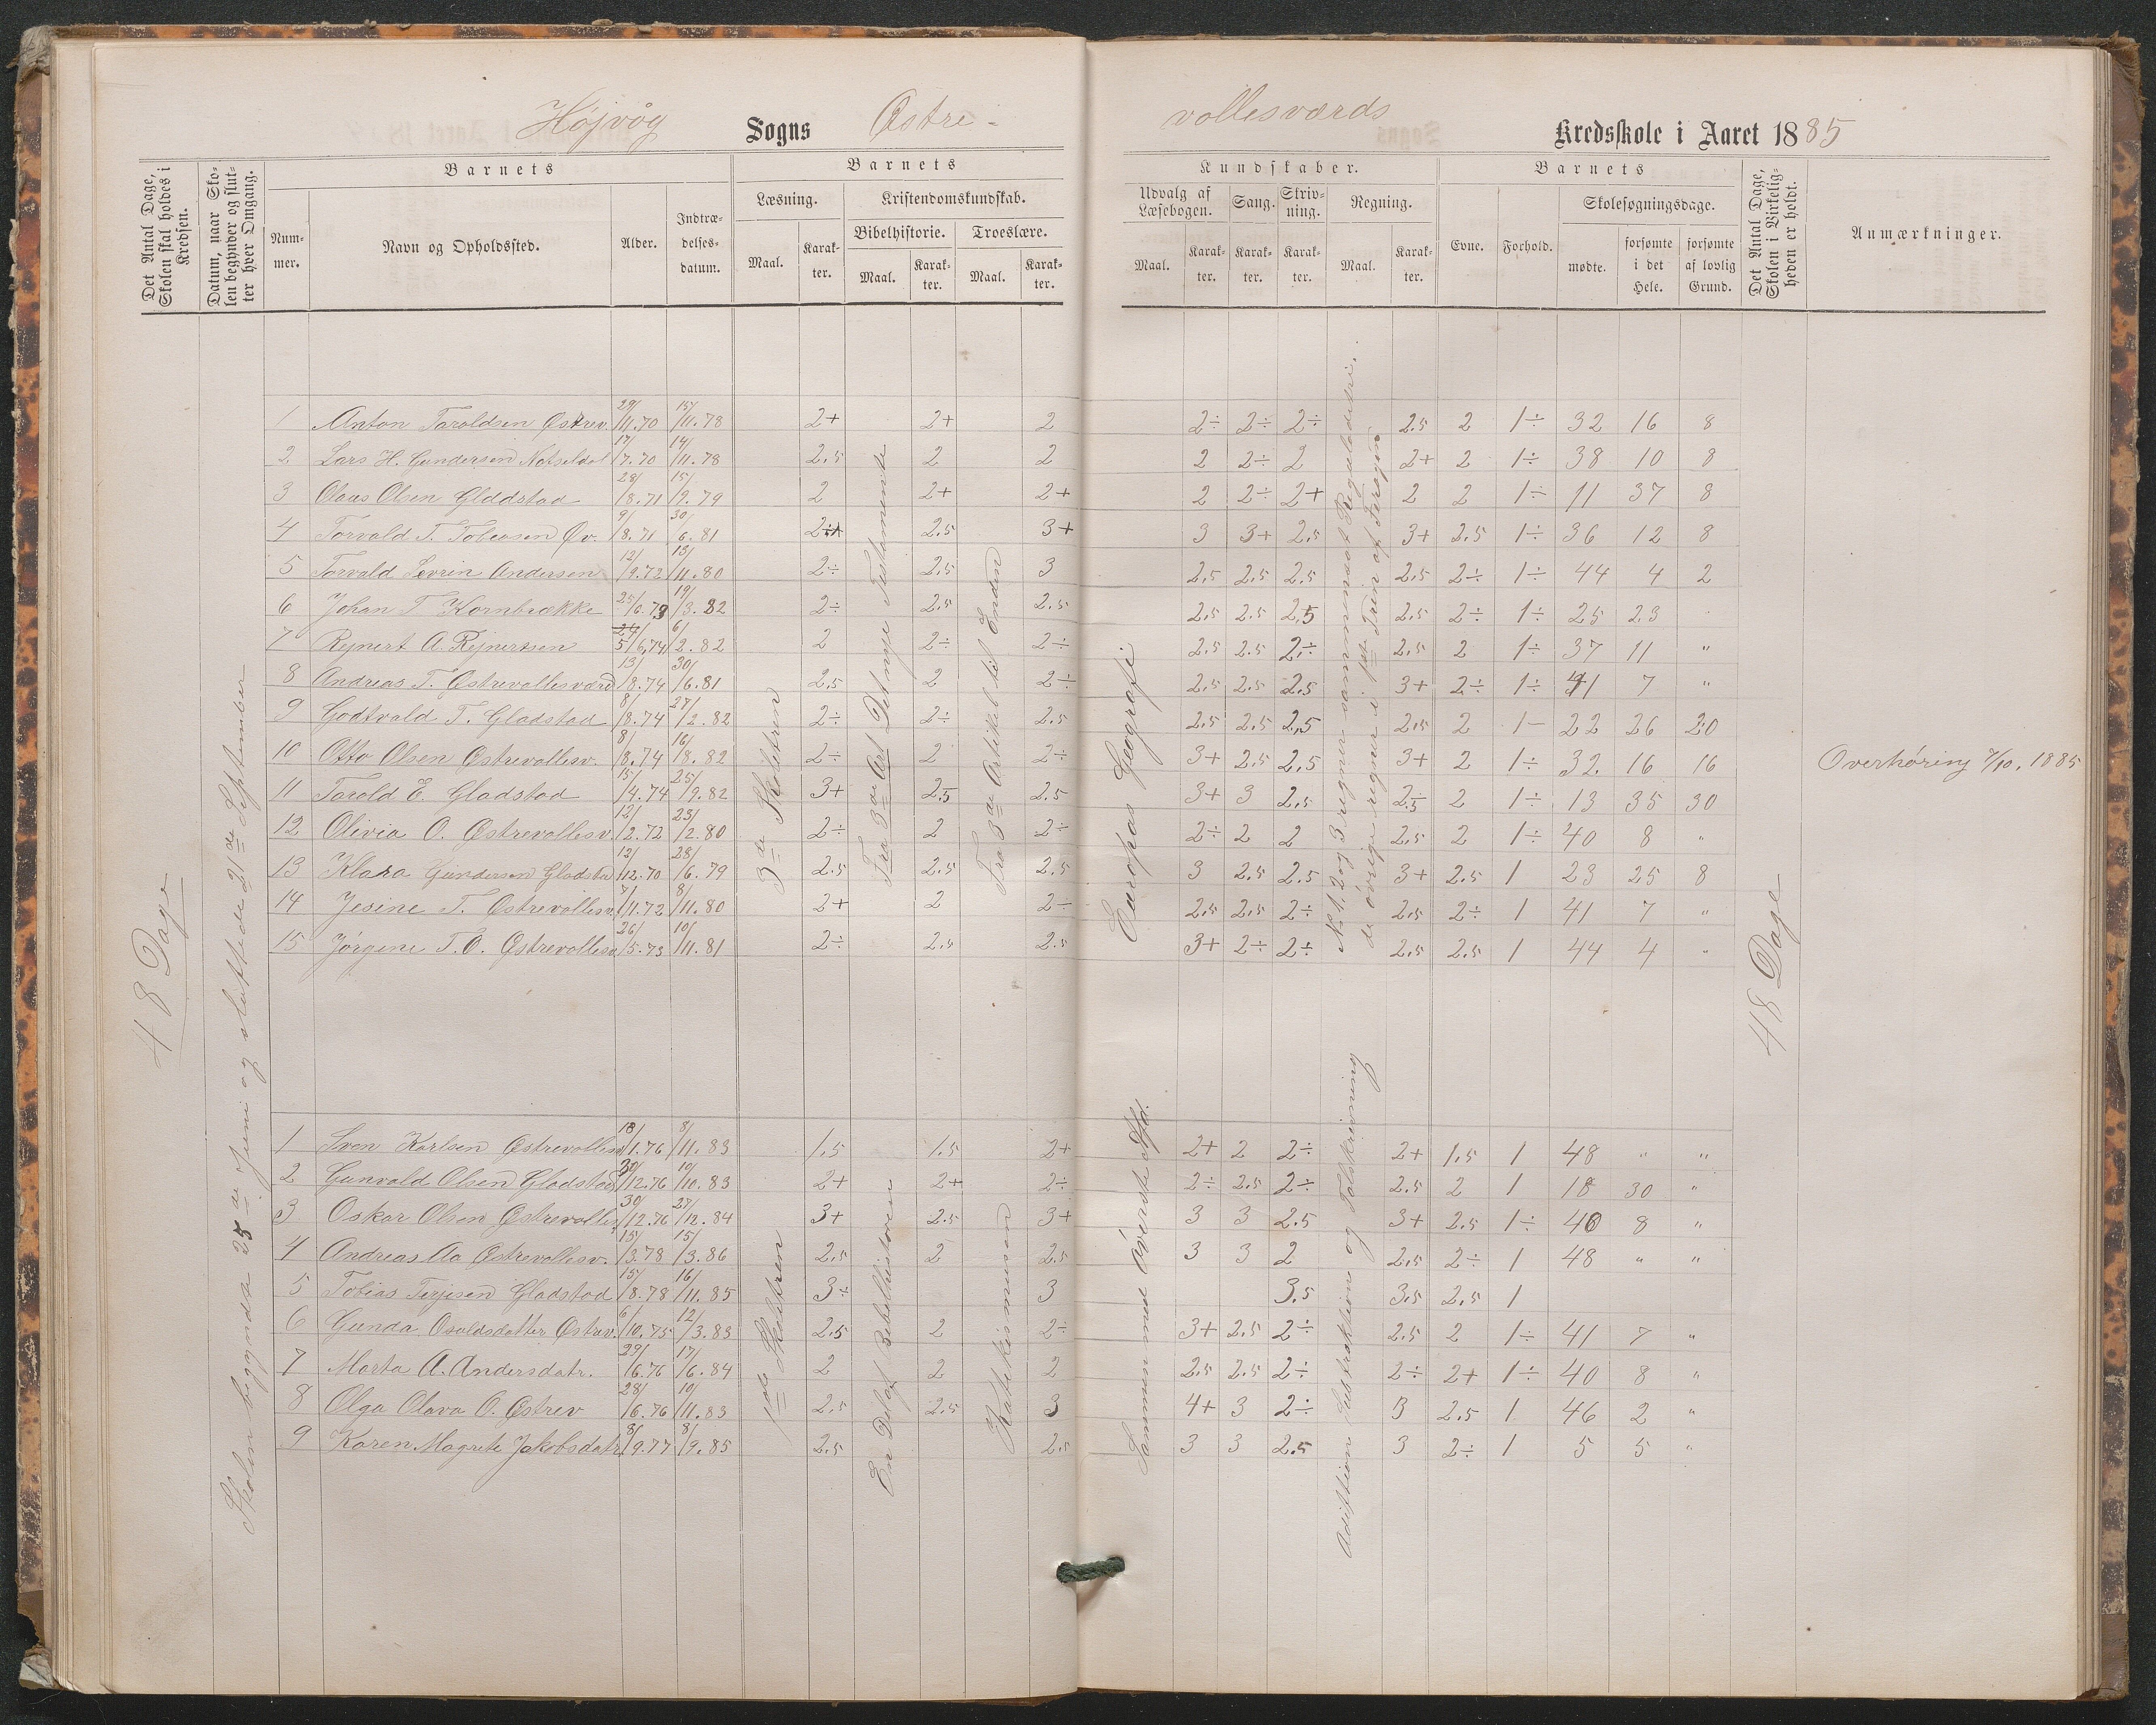 Højvåg Sogns Østre- vollesværds Kredsskole i Aaret 1885
Det Antal Dage, Skolen skal holdes i Kredsen.
Datum, naar Skolen begynder og slutter hver Omgang.
Barnets
Nummer.
Navn og Opholdssted.
Alder.
Indtrædelsesdatum.
Barnets
Læsning.
Maal.
Karakter.
Kristendomskundskab.
Bibelhistorie.
Maal.
Karakter.
Troeslære.
Maal.
Karakter.
Kundskaber.
Udvalg af Læsebogen.
Maal.
Karakter.
Sang.
Karakter.
Skrivning.
Karakter.
Regning.
Maal.
Karakter.
Barnets
Evne.
Forhold.
Skolesøgningsdage.
mødte.
forsømte i det Hele.
forsømte af lovlig Grund.
Det Antal Dage, Skolen i Virkeligheden er holdt.
Anmærkninger.
48 Dage
Skolen begyndte 25de Juni og sluttede 21de September
1 Anton Taroldsen Østrev. 29/11.70 15/11.78 2+ 2+ 2 2÷ 2÷ 2÷ 2.5 2 1÷ 32 16 8
2 Lars H. Gundersen 17/7.70 14/11.78 2.5 2 2 2 2÷ 2 2+ 2 1÷ 38 10 8
3 Olaus Olsen Gladdstad 28/8.71 15/9.79 2 2+ 2+ 2 2÷ 2+ 2 2 1÷ 11 37 8
4 Torvald T. Tobiasen Øv. 9/8.71 30/6.81 2.5 3+ 3 3+ 2.5 3+ 2.5 1÷ 36 12 8
5 Torvald Sevrin Andersen 12/9.72 13/11.80 2÷ 2.5 3 2.5 2.5 2.5 2.5 2÷ 1÷ 44 4 2
6 Johan T. Kornbrække 19/3.82 2÷ 2.5 2.5 2.5 2.5 2.5 2.5 2÷ 1÷ 25 23
7 Rejnert A. Rejnertsen 5/6.74 6/2.82 2 2÷ 2÷ 2.5 2.5 2÷ 2.5 2 1÷ 37 11 "
8 Andreas T. Østrevollesværd 13/8.74 30/6.81 2.5 2 2÷ 2.5 2.5 2.5 3+ 2÷ 1÷ 41 7 "
9 Godtvald T. Gladstad 8/8.74 27/2.82 2÷ 2÷ 2.5 2.5 2.5 2.5 2.5 2 1- 22 26 20
10 Otto Olsen Østrevollesv. 8/8.74 16/8.82 2÷ 2 2÷ 3+ 2.5 2.5 3+ 2 1÷ 32 16 16
11 Tarold E. Gladstad 15/4.74 25/9.82 3+ 2.5 2.5 3+ 3 2.5 2.5 2 1÷ 13 35 30
12 Olivia O. Østrevollesv. 12/2.72 23/2.80 2÷ 2 2÷ 2÷ 2 2 2.5 2 1÷ 40 8 "
13 Klara Gundersen Gladstad 12/12.70 28/6.79 2.5 2.5 2.5 3 2.5 2.5 3+ 2.5 1 23 25 8
14 Jesine T. Østrevollesv. 7/11.72 8/11.80 2+ 2 2÷ 2.5 2.5 2÷ 2.5 2÷ 1 41 7 "
15 Jørgine T.O. Østrevollesv. 26/5.73 10/11.81 2÷ 2.5 2.5 3+ 2÷ 2÷ 2.5 2.5 1 44 4 "
3de Skoletrin
Fra 3de Art Det nye Testamente
Fra 3de Artikel til Enden
Europas Geografi
No 1, 2 og 3 regner sammensat Reguladetri.
de øvrige regner i 1ste Trin af
48 Dage
Overhøring 7/10. 1885
1 Sven Karlsen Østrevollesv. 18/1.76 8/11.83 1.5 1.5 2+ 2+ 2 2÷ 2+ 1.5 1 48 " "
2 Gunvald Olsen Gladstad 30/12.76 10/10.83 2+ 2+ 2÷ 2÷ 2.5 2÷ 2.5 2 1 18 30 "
3 Oskar Olsen Østrevolles. 30/12.76 27/12.84 3+ 2.5 3+ 3 3 2.5 3+ 2.5 1÷ 40 8 "
4 Andreas Aa Østrevollesv. 15/3.78 15/3.86 2.5 2 2.5 3 3 2 2.5 2÷ 1 48 " "
5 Tobias Terjesen Gladstad 15/8.78 16/11.85 3÷ 3 3.5 3.5 2.5 1
6 Gunda Osvldsdatter Østrev. 6/10.75 12/3.83 2.5 2 2÷ 3+ 2.5 2÷ 2.5 2 1÷ 41 7 "
7 Marta A. Andersdatr. 29/6.76 17/6.84 2 2 2 2.5 2.5 2÷ 2÷ 2+ 1÷ 40 8 "
8 Olga Olava O. Østrev 28/6.76 10/11.83 2.5 2.5 3 4+ 3 2÷ 3 2.5 1 46 2 "
9 Karen Magrete Jakobsdatr. 8/9.77 8/9.85 2.5 2.5 3 3 2.5 3 2÷ 1 5 5 "
1ste Skoletrin
En Del af Bibelhistorien
Katekismusen
Sammen med øverste Afd.
Addition Subtraktion og Talskrivning